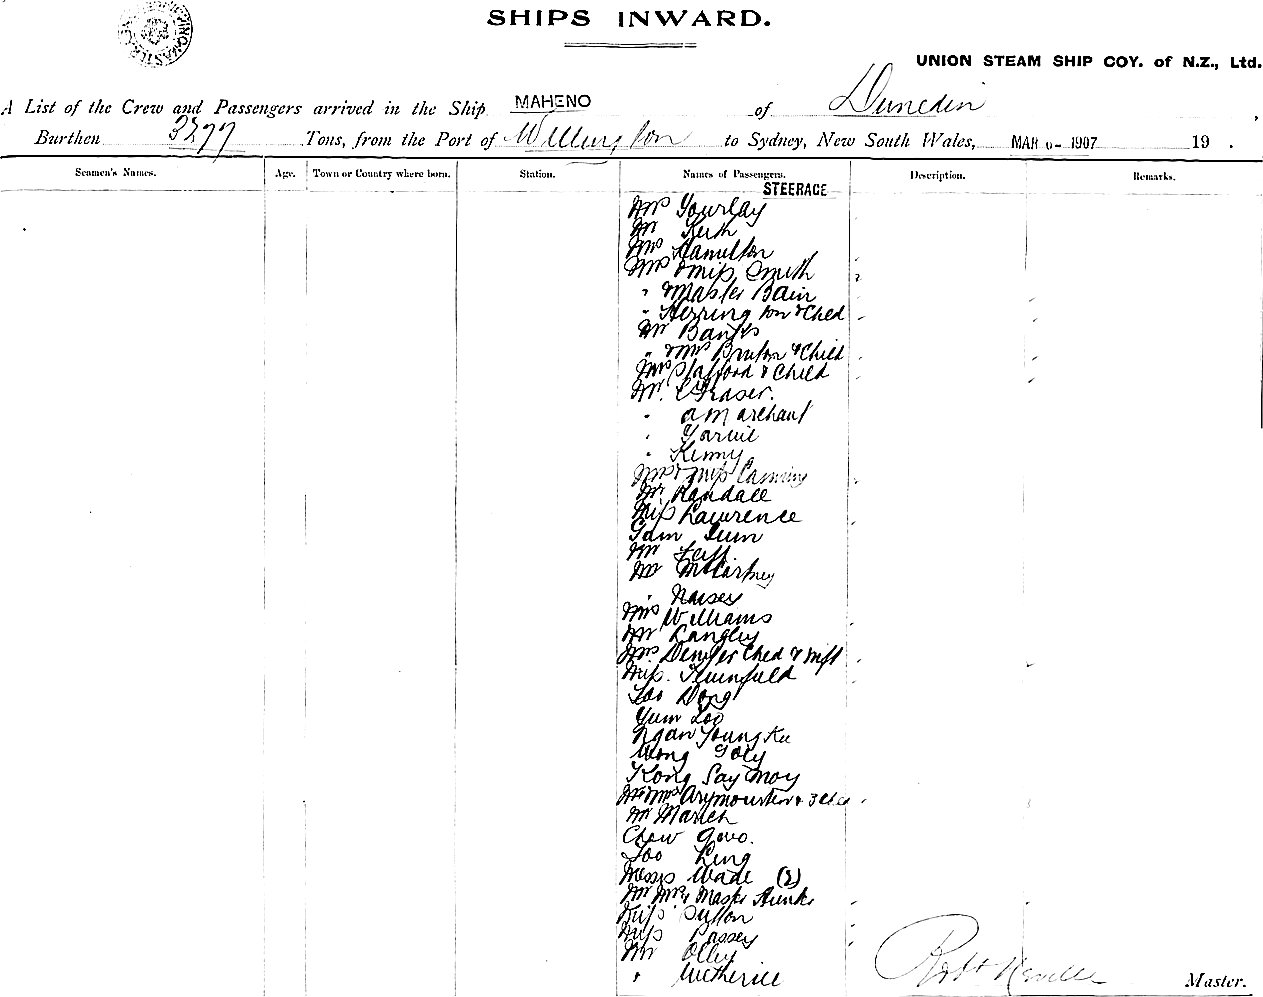 SHIPS INWARD.
UNION STEAM SHIP COY. of N.Z., Ltd.
A List of the Crew and Passengers arrived in the Ship MAHENO of Dunedin
Burthen 3277 Tons, from the Port of Wellington to Sydney, New South Wales, MAR 1907 19 .
Seamen's Names. Age. Town or Country where born. Station. Names of Passengers. Description. Remarks.
STEERAGE
Mrs Gourlay
Mr Keith
Mrs Hamilton
Mrs & Miss Smith
" & Master Bain
" Herring & Child
Mr Banks
" & Mrs Bruton & Child
Mrs Stafford & Child
Mr. Fraser.
" A Marchant
" Garvie
" Kenny
Mrs & Miss Canning
Mr Randall
Miss Lawrence
Gam Lum
Mr
Mr McCartney
"
Mrs Williams
Mr Langley
Mrs. Child &
Miss.
Loo Dong
Yum Loo
Ngan Young Ku
Wong Goey
Kong Say Moy
Mr Mrs & 3
Mr March
Chow
Loo Ling
Messrs Wade (2)
Mr Mrs & Master
Miss Sutton
Miss Passey
Mr Olley
" Wetherill
Robt Neville Master.